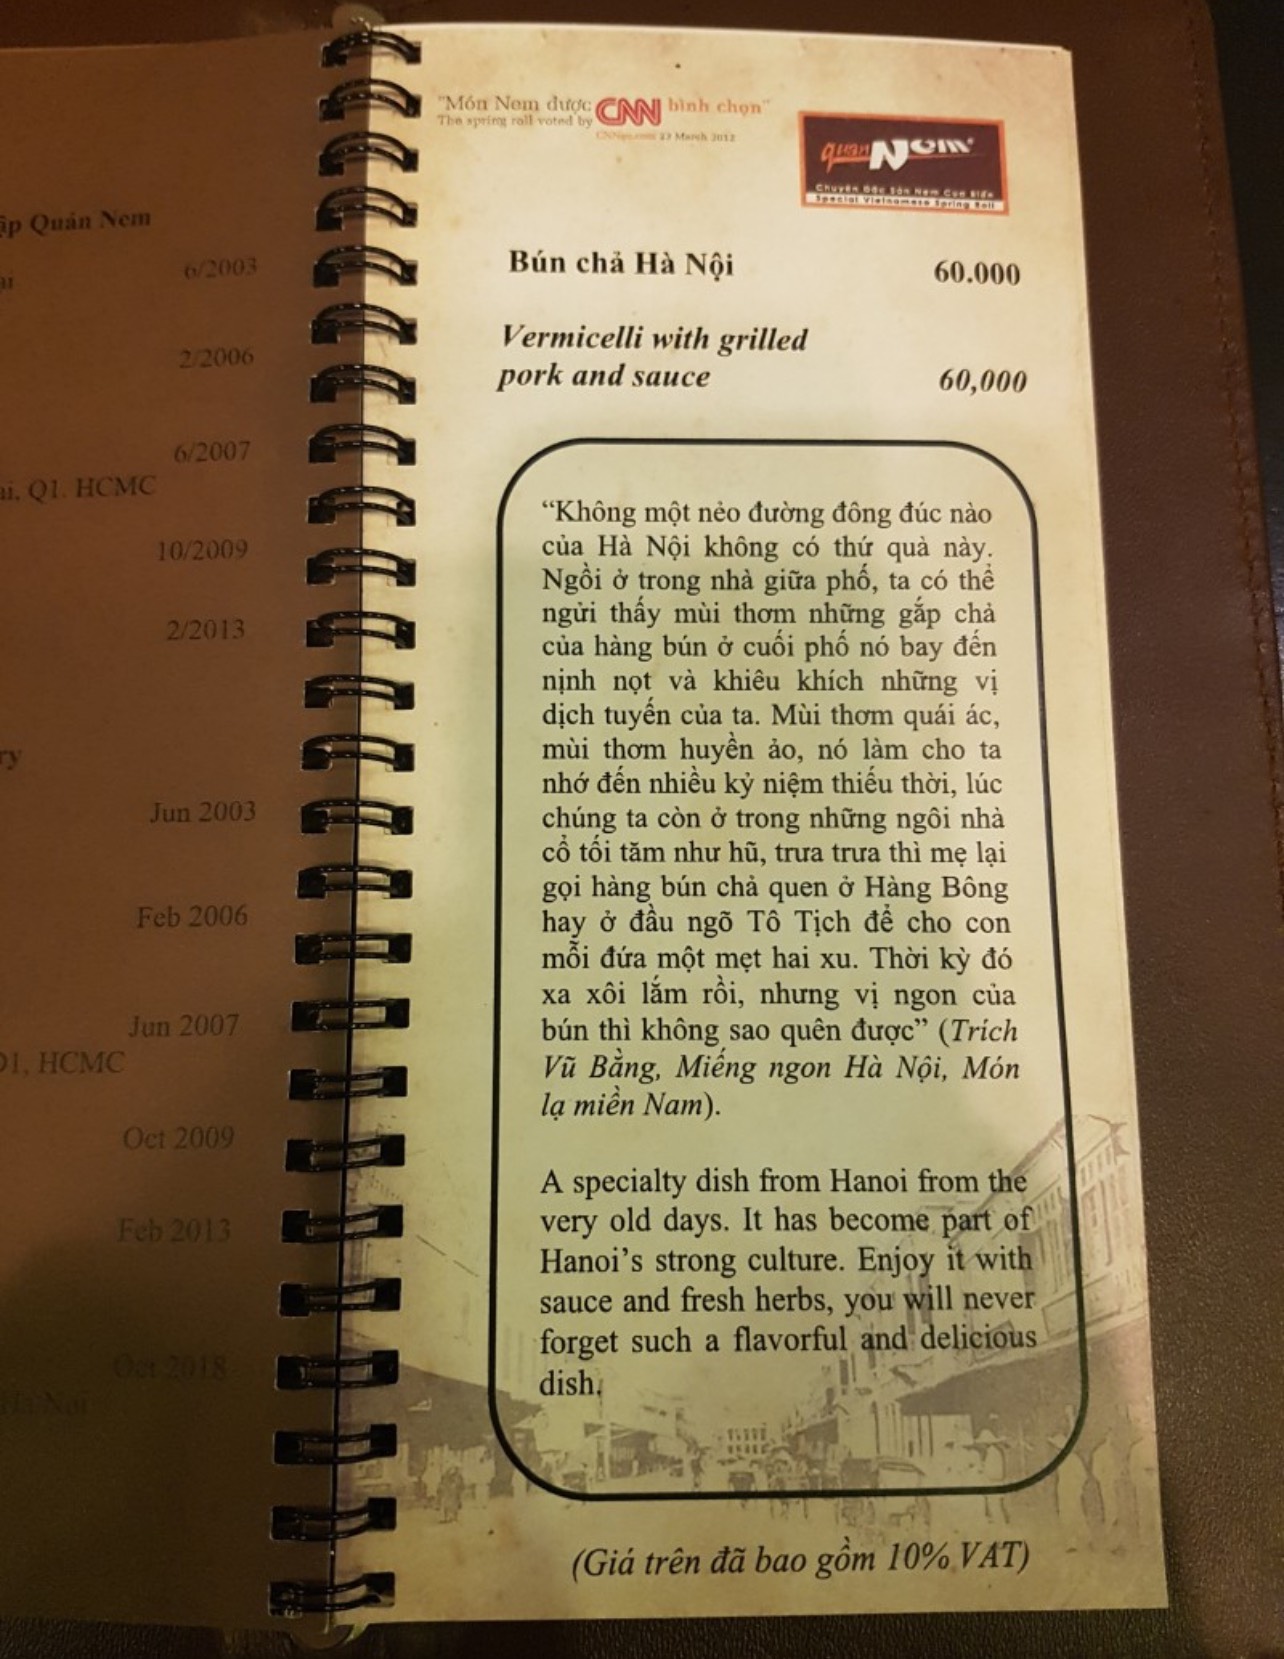 ập Quán Nem
6/2003
2/2006
6/2007
ai, Q1. HCMC
10/2009
2/2013
ry
Jun 2003
Feb 2006
Jun 2007
Q1, HCMC
Oct 2009
Feb 2013
Oct 2018
"Món Nem được CNN bình chọn"
The spring roll voted by
CNNgo.com 23 March 2012
quán Nem
Chuyên Đặc Sản Nem Cua Biển
Special Vietnamese Spring Roll
Bún chả Hà Nội 60.000
Vermicelli with grilled
pork and sauce 60,000
“Không một nẻo đường đông đúc nào
của Hà Nội không có thứ quà này.
Ngồi ở trong nhà giữa phố, ta có thể
ngửi thấy mùi thơm những gắp chả
của hàng bún ở cuối phố nó bay đến
nịnh nọt và khiêu khích những vị
dịch tuyến của ta. Mùi thơm quái ác,
mùi thơm huyền ảo, nó làm cho ta
nhớ đến nhiều kỷ niệm thiếu thời, lúc
chúng ta còn ở trong những ngôi nhà
cổ tối tăm như hũ, trưa trưa thì mẹ lại
gọi hàng bún chả quen ở Hàng Bông
hay ở đầu ngõ Tô Tịch để cho con
mỗi đứa một mẹt hai xu. Thời kỳ đó
xa xôi lắm rồi, nhưng vị ngon của
bún thì không sao quên được” (Trích
Vũ Bằng, Miếng ngon Hà Nội, Món
lạ miền Nam).
A specialty dish from Hanoi from the
very old days. It has become part of
Hanoi’s strong culture. Enjoy it with
sauce and fresh herbs, you will never
forget such a flavorful and delicious
dish.
(Giá trên đã bao gồm 10% VAT)